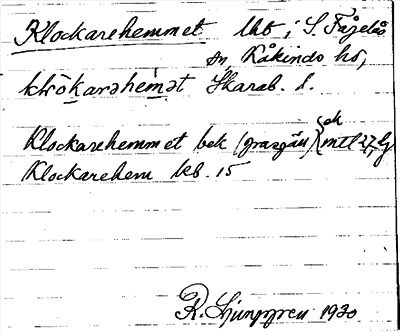 Klockarehemmet lht i S. Fågelås
sn, Kåkindo hd,
klɷ̀karəhemət Skarab. l.
Klockarehemmet bek (grasgån) ek mtl 27, lj
Klockarehem kb. 15
R. Ljunggren 1930